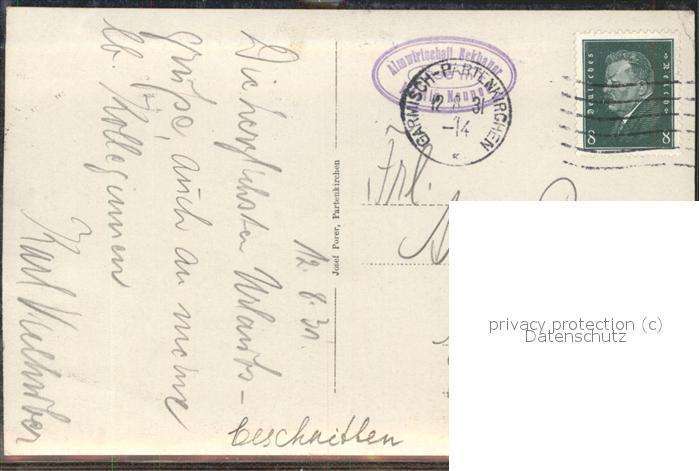 12.8.31.
Die herzlichsten Urlaubs-
grüße, auch an meine
lb. Kolleginnen
Karl
beschnitten
Josef Porer, Partenkirchen
Almwirtschaft
GARMISCH-PARTENKIRCHEN
12.8.31
-14
Deutsches Reich
8 8
Frl.
privacy protection (c)
Datenschutz